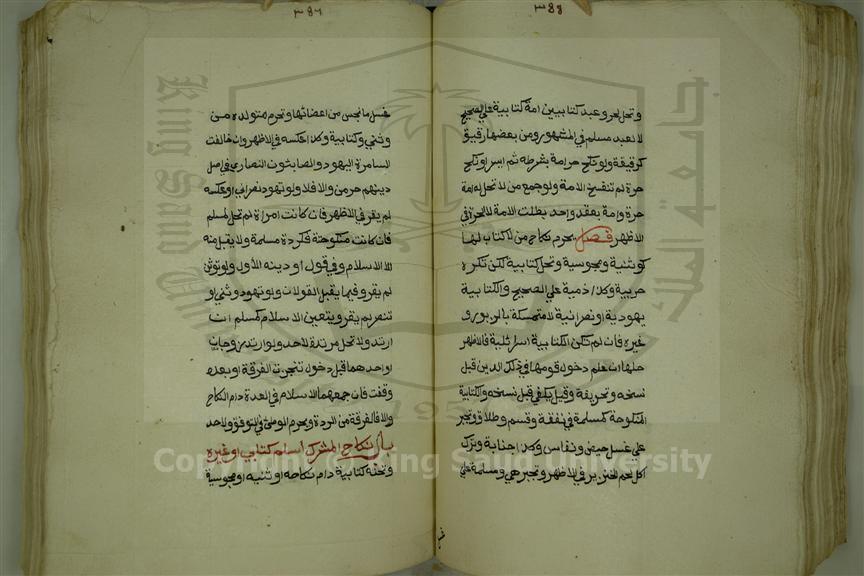 ٣٨٥
وتحل لحر وعبد كتابيين امة كتابية علي الصحيح
لا لعبد مسلم في المشهور ومن بعضها رقيق
كرقيقة ولو نكح حر امة بشرطه ثم ايسر او نكح
حرة لم تنفسخ الامة ولو جمع من لا تحل له امة
حرة وامة بعقد واحد بطلت الامة لا الحرة في
الاظهر فصل يحرم نكاح من لا كتاب لها
كوثنية ومجوسية وتحل كتابية لكن تكره
حربية وكذا ذمية علي الصحيح والكتابية
يهودية او نصرانية لا متمسكة بالزبور و
غيره فان لم تكن الكتابية اسرائلية فالاظهر
حلها ان علم دخول قومها في ذلك الدين قبل
نسخه وتحريفه وقيل يكفي قبل نسخه والكتابية
المنكوحة كمسلمة في نفقة وقسم وطلاق وتجبر
علي غسل حيض ونفاس وكذا جنابة وترك
اكل لحم الخنزير في الاظهر وتجبر هي ومسلمة علي
٣٨٦
غسل ما نجس من اعضائها وتحرم متولدة من
وثني وكتابية وكذا عكسه في الاظهر وان خالفت
السامرة اليهود والصابئون النصاري في اصل
دينهم حرمن والا فلا ولو تهود نصراني او عكسه
لم يقر في الاظهر فان كانت امراة لم تحل لمسلم
فان كانت منكوحة فكردة مسلمة ولا يقبل منه
الا الاسلام وفي قول او دينه الاول ولو توثن
لم يقر وفيما يقبل القولان ولو تهود وثني او
تنصر لم يقر ويتعين الاسلام كمسلم ا
ارتد ولا تحل مرتدة لاحد ولو ارتد زوجان
او احدهما قبل دخول تنجزت الفرقة او بعده
وقفت فان جمعهما الاسلام في العدة دام النكاح
والا فالفرقة من الردة ويحرم الوطئ في التوقف ولا حد
باب نكاح المشرك اسلم كتابي او غيره
وتحته كتابية دام نكاحه او وثنية او مجوسية
جامعة الملك سعود
King Saud University
1957
Copyright © King Saud University